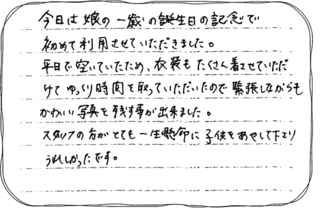 今日は娘の一歳の誕生日の記念で
初めて利用させていただきました。
平日で空いていたため、衣装もたくさん着させていただ
けてゆっくり時間を取っていただいたので緊張しながらも
かわいい写真を残す事が出来ました。
スタッフの方がとても一生懸命に子供をあやして下さり
うれしかったです。